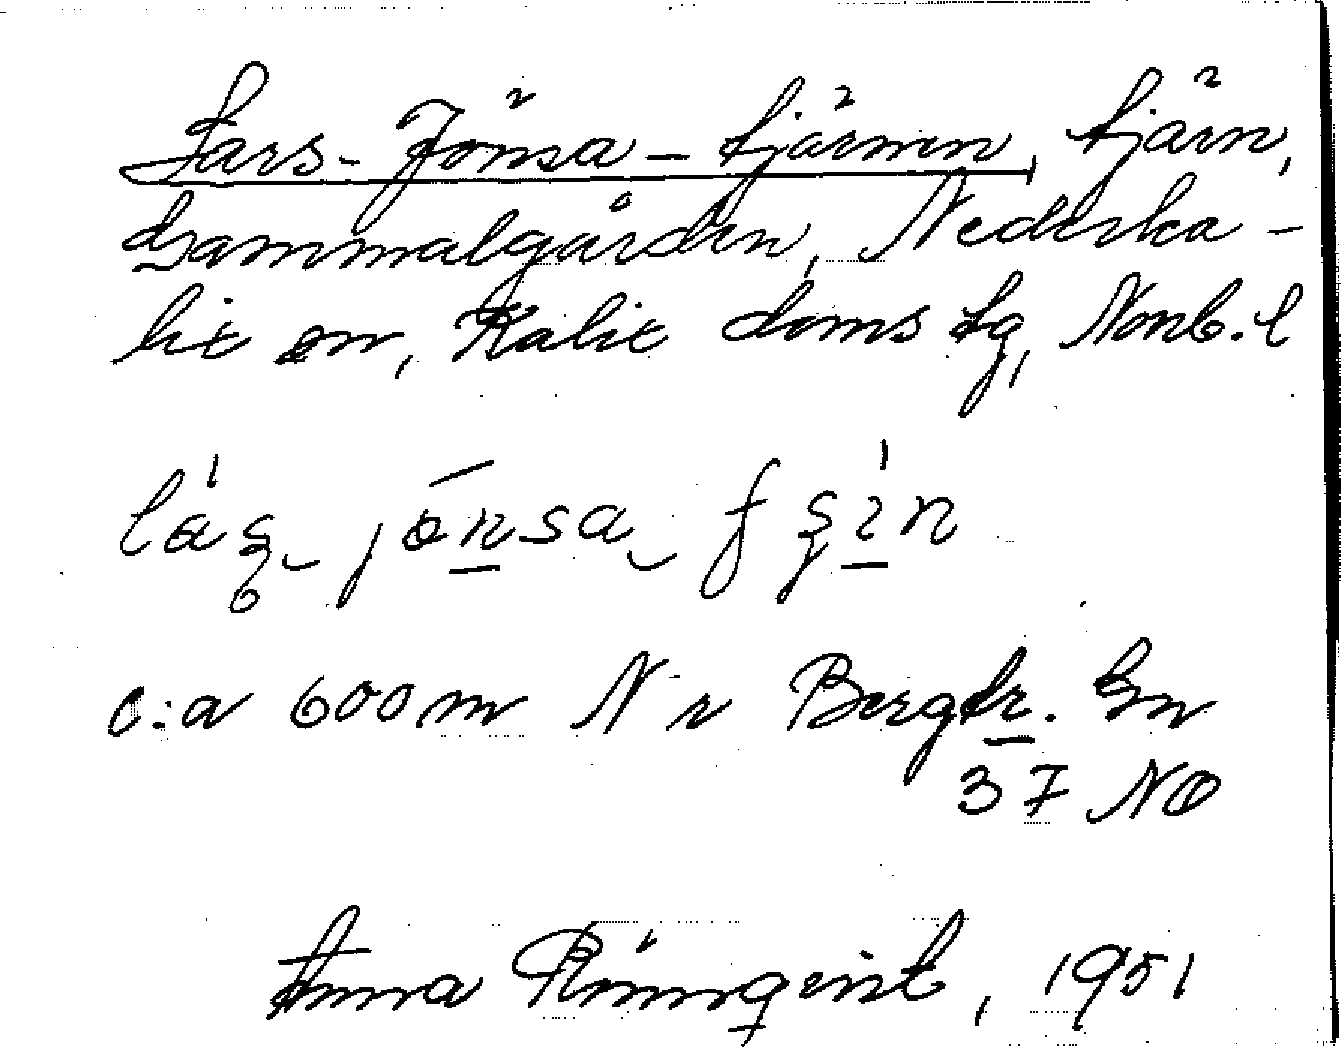 Lars-Jönsa-tjärnen, tjärn,
Gammalgården, Nederka-
lix sn, Kalix doms tg, Norrb. l
c:a 600 m N r Bergtr. Gn
37 NO
Anna Rönnqvist, 1951